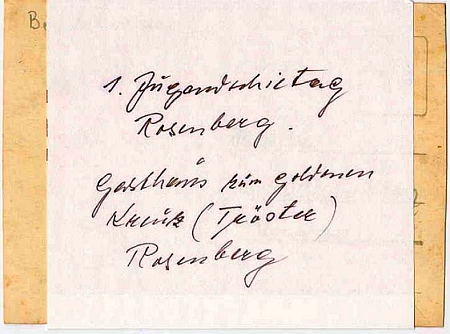 B
1. Jugendschietag
Rosenberg.
Gasthaus zum goldenen
Kreuz (Tröster)
Rosenberg